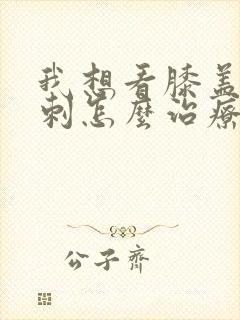 我想看膝盖
刺怎麼治療
公子齊